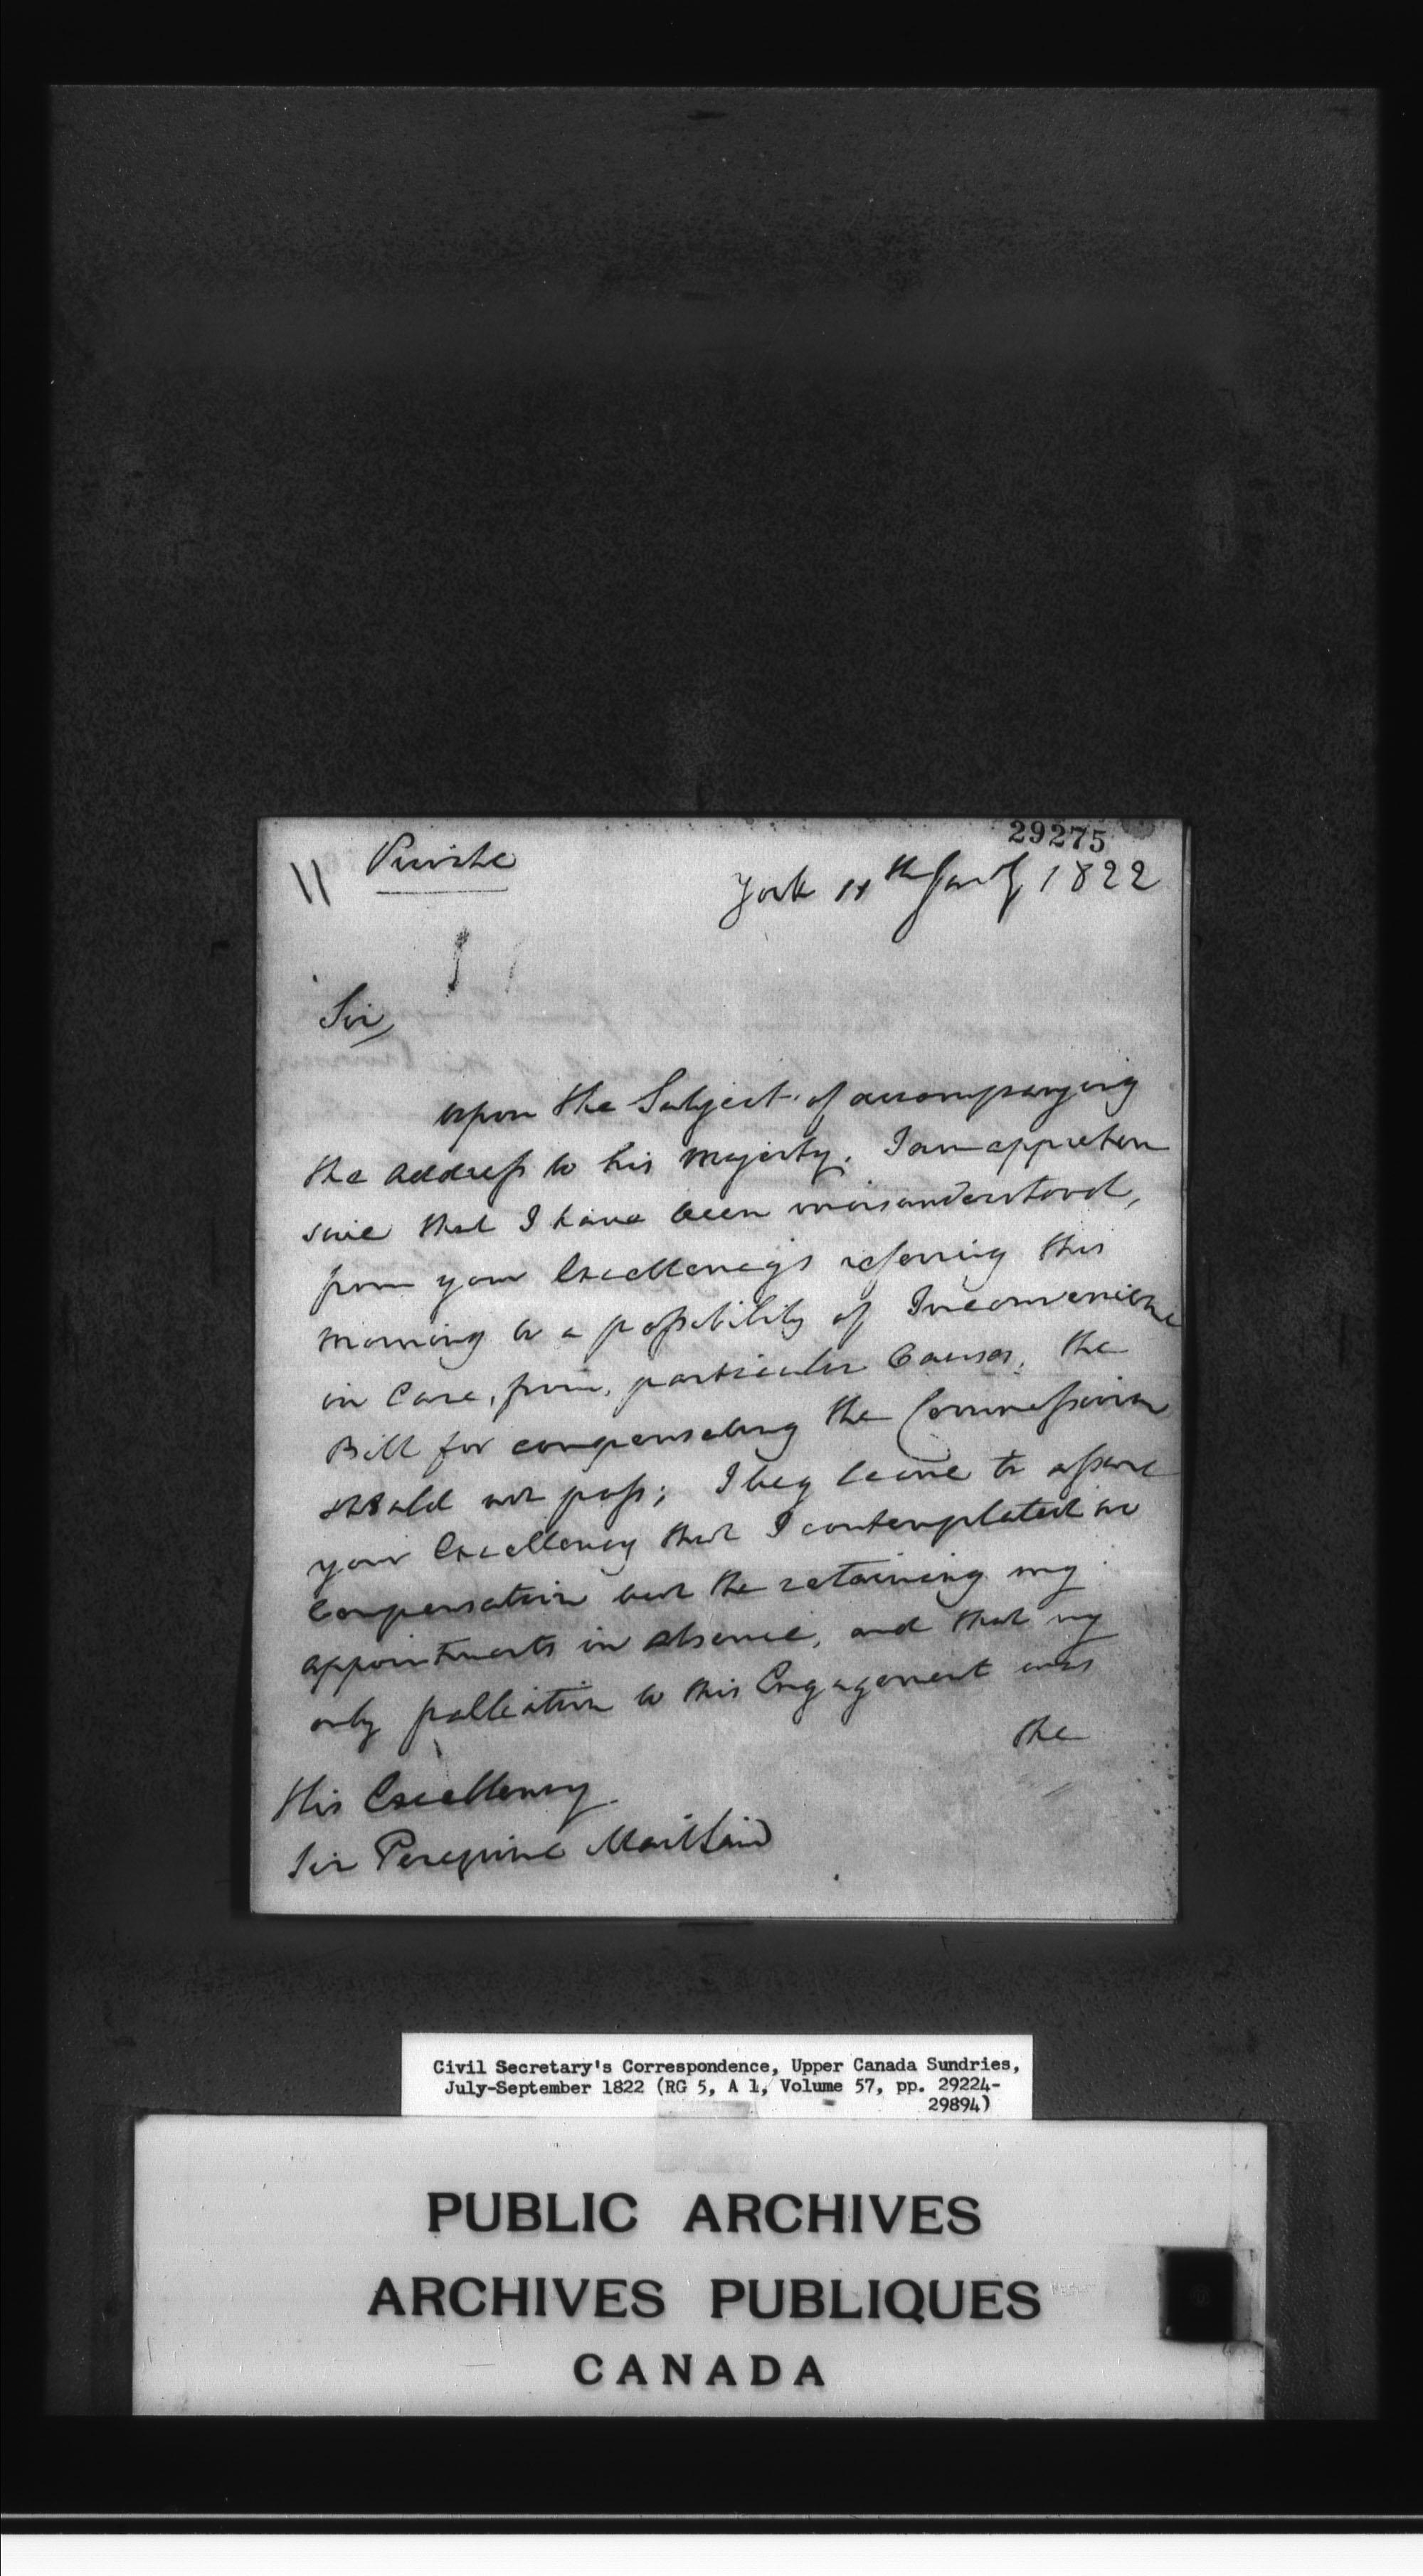 29275
11
Private
York 11th Jany 1822
Sir
upon the Subject of accompanying
the address to his Majesty. I am apprehen
sive that I have been misunderstood,
from your Excellency's referring this
morning to a possibility of Inconvenience
in Case, from, particular Causes, the
Bill for compensating the Commission
should not pass; I beg leave to assure
your Excellency that I contemplated no
Compensation but the retaining my
appointments in absence, and that my
only palliation to this Engagement was
the
His Excellency
Sir Peregrine Maitland
Civil Secretary's Correspondence, Upper Canada Sundries,
July-September 1822 (RG 5, A 1, Volume 57, pp. 29224-
29894)
PUBLIC ARCHIVES
ARCHIVES PUBLIQUES
CANADA